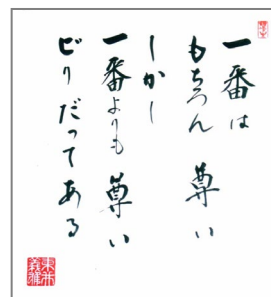 一番は
もちろん 尊い
しかし
一番よりも 尊い
ビリだってある
東井
義雄